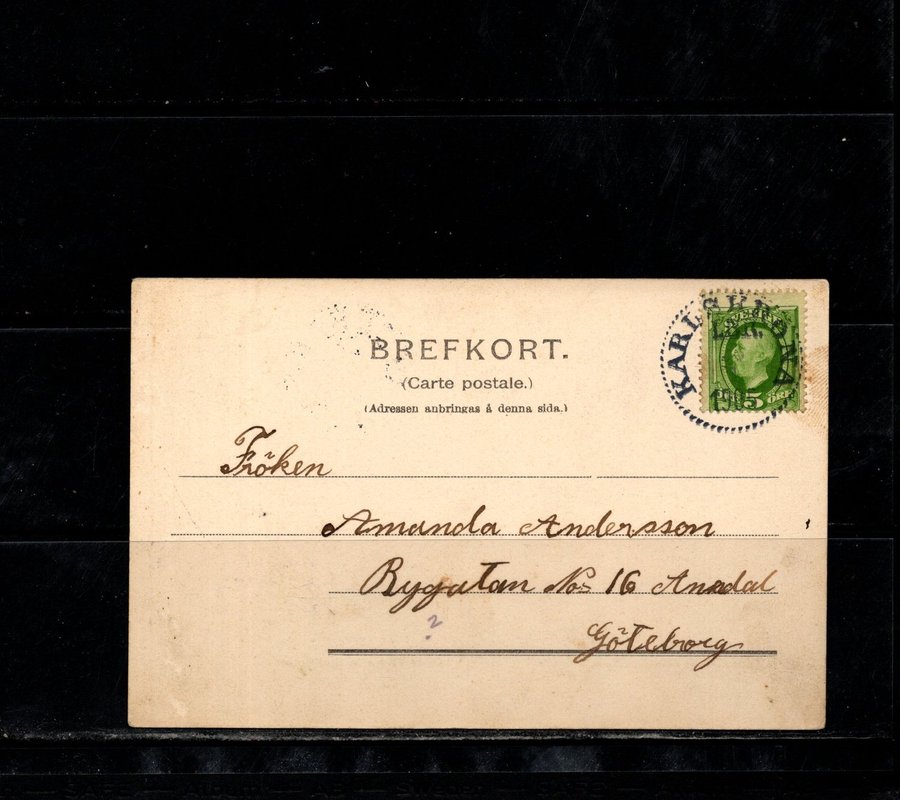 BREFKORT.
(Carte postale.)
(Adressen anbringas å denna sida.)
KARLSKRONA
1905
SVERIGE
5 ÖRE
Fröken
Amanda Andersson
Rygatan No 16 Annedal
?
Göteborg